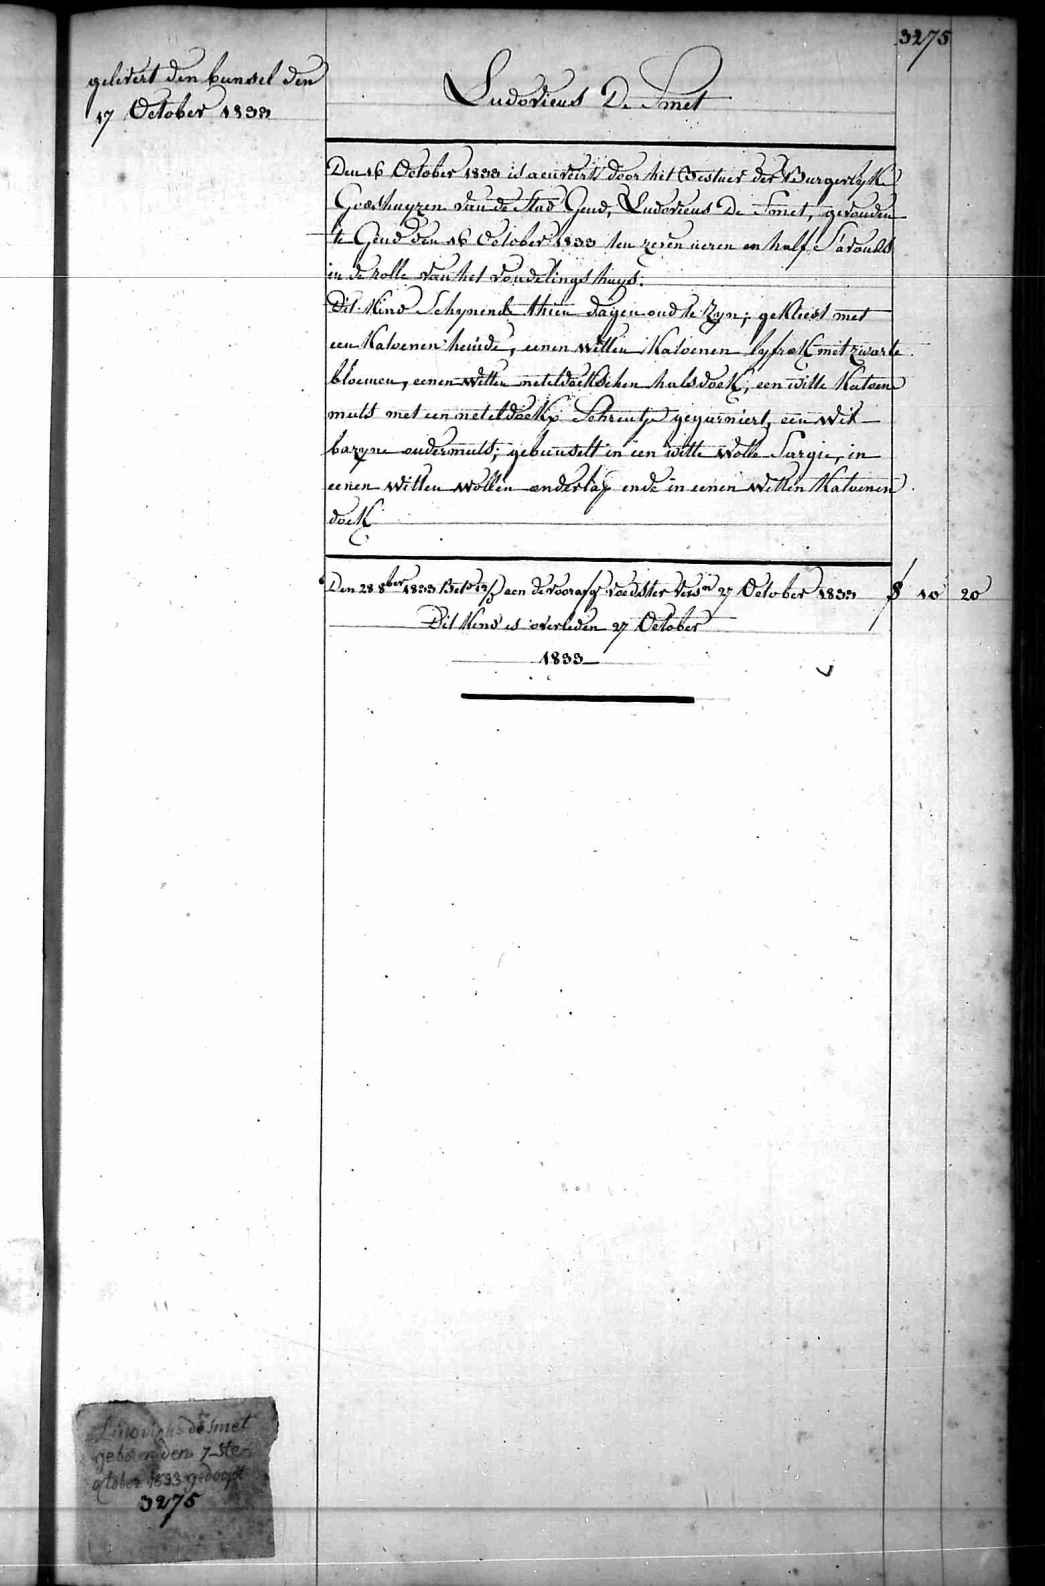 3275
gelivert den bunsel den
17 October 1833
Ludovicus De Smet
Den 16 October 1833 is aenveirt door het Bestuer der Burgerlyke
Godshuyzen van de Stad Gend, Ludovicus De Smet, gevonden
te Gend den 16 October 1833 ten zeven ueren en half s'avonds
in de rolle van het vondelings huys.
Dit Kind schynende thien dagen oud te zyn; gekleed met
een Katoenen hemde, eenen witten Katoenen lyfrok met zwarte
bloemen, eenen witten neteldoekschen halsdoek, een witte Katoene
muts met een neteldoekx Schreutje gegarniert, een wit
bazyne ondermuts; gebunselt in een witte wolle Sargie, in
eenen witten wollen onderlap ende in eenen witten Katoenen
doek
Den 28 8ber 1833 aen de voedster 27 October 1833 10 20
Dit Kind is overleden 27 October
1833
Ludovicus de smet
geboren den 7-ste
october 1833 gedoopt
3275